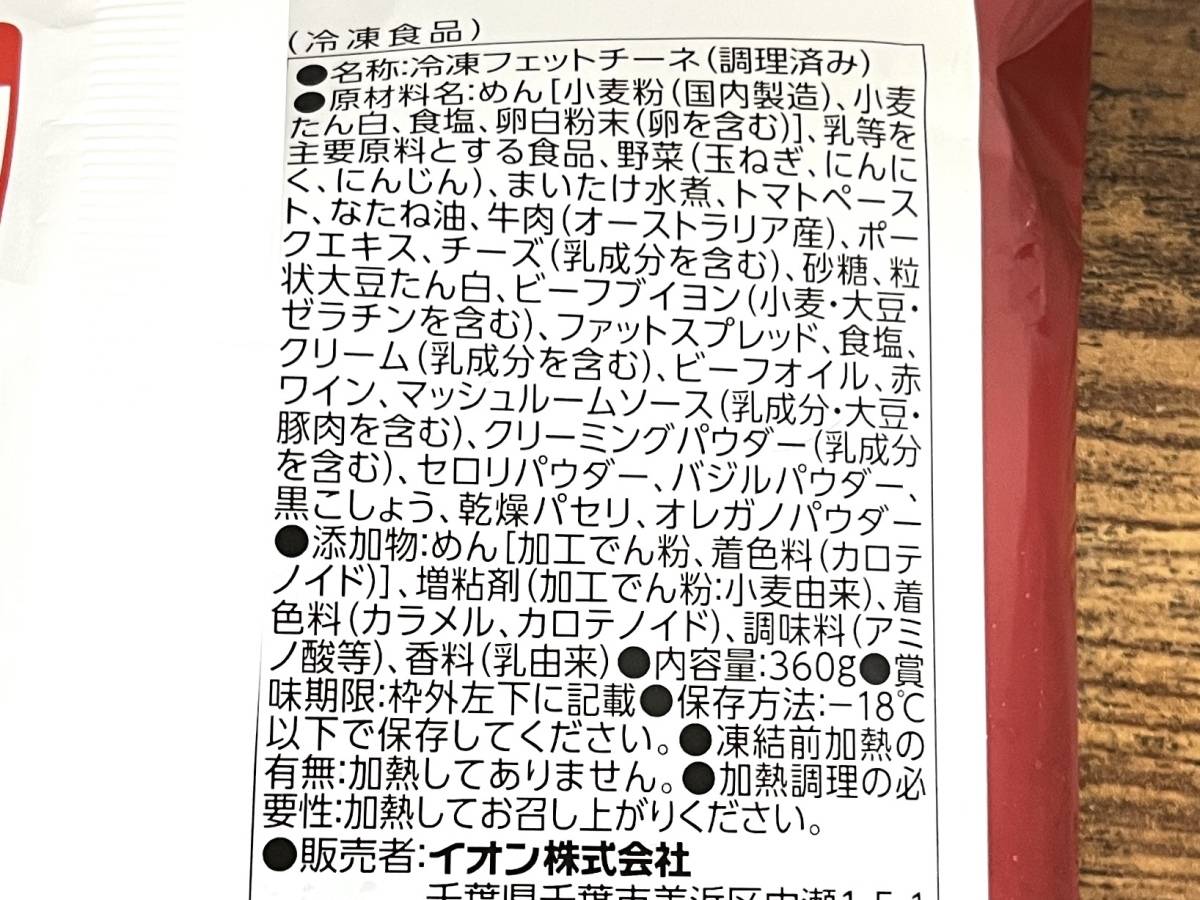 (冷凍食品)
●名称:冷凍フェットチーネ(調理済み)
●原材料名:めん[小麦粉(国内製造)、小麦
たん白、食塩、卵白粉末(卵を含む)]、乳等を
主要原料とする食品、野菜(玉ねぎ、にんに
く、にんじん)、まいたけ水煮、トマトペース
ト、なたね油、牛肉(オーストラリア産)、ポー
クエキス、チーズ(乳成分を含む)、砂糖、粒
状大豆たん白、ビーフブイヨン(小麦・大豆・
ゼラチンを含む)、ファットスプレッド、食塩、
クリーム(乳成分を含む)、ビーフオイル、赤
ワイン、マッシュルームソース(乳成分・大豆・
豚肉を含む)、クリーミングパウダー(乳成分
を含む)、セロリパウダー、バジルパウダー、
黒こしょう、乾燥パセリ、オレガノパウダー
●添加物:めん[加工でん粉、着色料(カロテ
ノイド)]、増粘剤(加工でん粉:小麦由来)、着
色料(カラメル、カロテノイド)、調味料(アミ
ノ酸等)、香料(乳由来)●内容量:360g●賞
味期限:枠外左下に記載●保存方法:−18℃
以下で保存してください。●凍結前加熱の
有無:加熱してありません。●加熱調理の必
要性:加熱してお召し上がりください。
●販売者:イオン株式会社
千葉県千葉市美浜区中瀬1-5-1